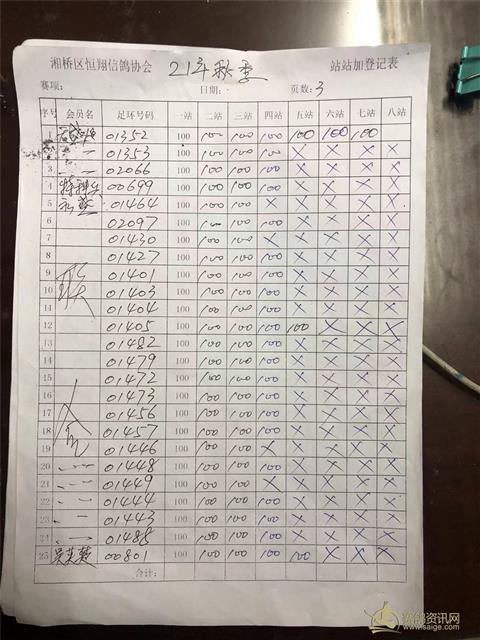 湘桥区恒翔信鸽协会 21年秋季 站站加登记表
赛项: 日期: 页数: 3
序号 会员名 足环号码 一站 二站 三站 四站 五站 六站 七站 八站
01352 100 100 100 100 100 100 100
2 〃 01353 100 100 100 100 × × × ×
3 〃 02066 100 100 100 100 × × × ×
4 特种兵 00699 100 100 100 100 × × × ×
5 01464 100 100 100 × × × × ×
6 02097 100 100 100 100 × × × ×
7 01430 100 100 100 × × × × ×
8 01427 100 100 100 100 × × × ×
9 01401 100 100 100 100 × × × ×
10 01403 100 100 100 100 × × × ×
11 01404 100 100 100 100 × × × ×
12 01405 100 100 100 100 100 × × ×
13 01482 100 100 100 100 × × × ×
14 01479 100 100 100 100 × × × ×
15 01472 100 100 100 100 × × × ×
16 01473 100 100 100 100 × × × ×
17 01456 100 100 100 100 × × × ×
18 01457 100 100 100 100 × × × ×
19 01446 100 100 100 × × × × ×
20 01448 100 100 100 100 × × × ×
21 01449 100 100 100 × × × × ×
22 01444 100 100 100 100 × × × ×
23 01443 100 100 100 100 × × × ×
24 01488 100 100 100 100 × × × ×
25 00801 100 100 100 100 100 × × ×
合计:
赛鸽资讯网
www.saige.com